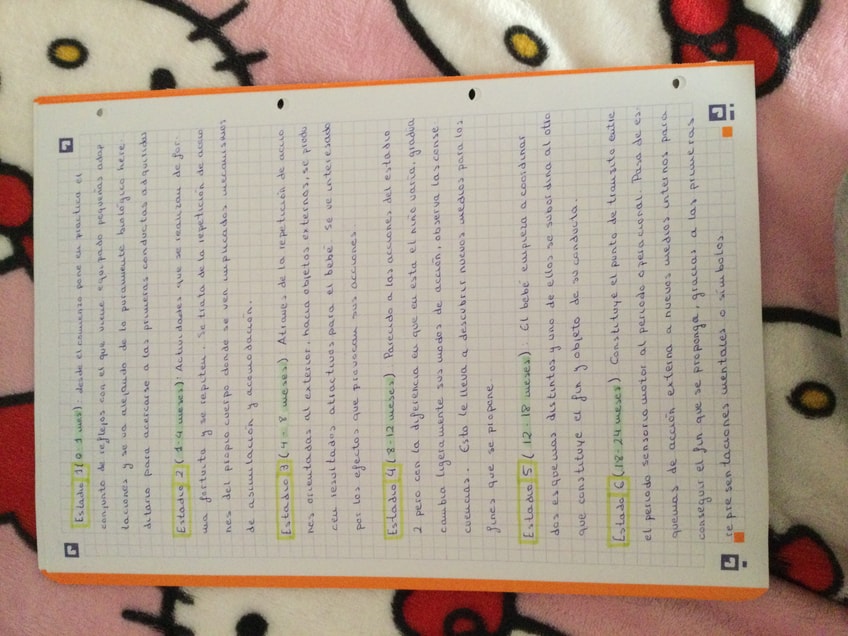 Estadio 1 (0-1 mes): desde el comienzo pone en práctica el
conjunto de reflejos con el que viene equipado pequeñas adap
taciones y se va alejando de lo puramente biológico here-
ditario para acercarse a las primeras conductas adquiridas
Estadio 2 (1-4 meses): Actividades que se realizan de for-
ma fortuita y se repiten. Se trata de la repetición de accio
nes del propio cuerpo donde se ven implicados mecanismos
de asimilación y acomodación.
Estadio 3 (4-8 meses) Atraves de la repetición de accio
nes orientadas al exterior, hacia objetos externos, se produ
cen resultados atractivos para el bebé se ve interesado
por los efectos que provocan sus acciones.
Estadio 4 (8-12 meses) Parecido a las acciones del estadio
2 pero con la diferencia en que en esta el niño varia, gradua
cambia ligeramente sus modos de acción, observa las conse
cuencias. Esto le lleva a descubrir nuevos medios para los
fines que se propone
Estadio 5 (12-18 meses): El bebé empieza a coordinar
dos esquemas distintos y uno de ellos se subordina al otro
que constituye el fin y objeto de su conducta.
Estado 6 (18-24 meses): Constituye el punto de transito entre
el periodo sensoriomotor al periodo operacional. Pasa de es-
quemas de acción externa a nuevos medios internos para
conseguir el fin que se proponga, gracias a las primeras
representaciones mentales o símbolos